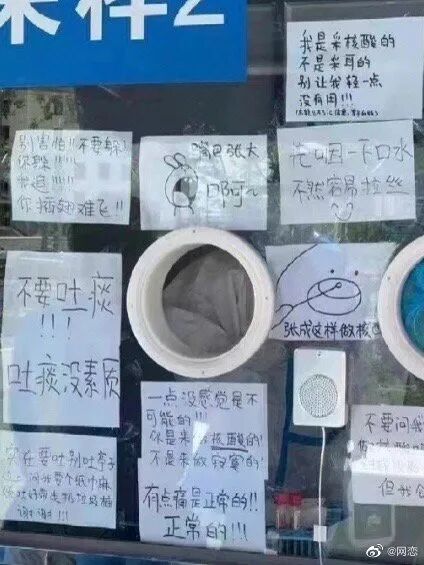 采样2
我是采核酸的
不是采耳的
别让我轻一点
没有用!!!
别害怕!!不要躲!
你躲!!!!!
我追!!!!!
你插翅难飞!!
嘴巴张大
啊~
先咽一下口水
不然容易拉丝
不要吐痰
!!!
吐痰没素质
张成这样做核
一点没感觉是不
可能的!!!
你是来做核酸的!
不是来做寂寞的!
有点痛是正常的!!
正常的!!!
实在要吐别吐台子
问我要个纸巾嘛
谢谢!!!
不要问我
但我会
@网恋